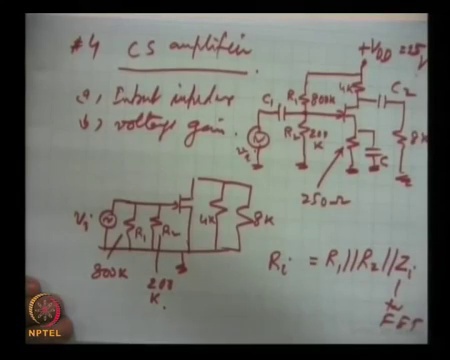 #4 CS amplifier
a, Input impeden
b, voltage gain.
+VDD = 25V
4K
C2
R1 800K
C1
R2 200
K
8K
C
Vi
250Ω
Vi
R1
R2
4K
8K
800K
200
K.
Ri = R1 || R2 || Zi
FET
NPTEL